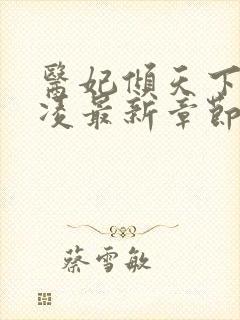 醫妃傾天下
凌最新章節
蔡雪敏